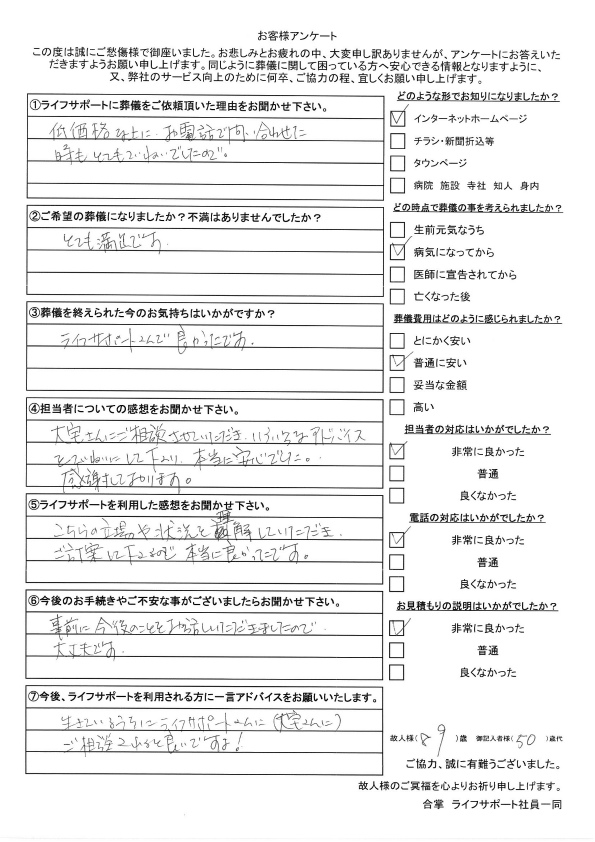 お客様アンケート
この度は誠にご愁傷様で御座いました。お悲しみとお疲れの中、大変申し訳ありませんが、アンケートにお答えいた
だきますようお願い申し上げます。同じように葬儀に関して困っている方へ安心できる情報となりますように、
又、弊社のサービス向上のために何卒、ご協力の程、宜しくお願い申し上げます。
①ライフサポートに葬儀をご依頼頂いた理由をお聞かせ下さい。
低価格な上に、お電話で問い合わせた
時もとてもていねいでしたので。
②ご希望の葬儀になりましたか？不満はありませんでしたか？
とても満足です。
③葬儀を終えられた今のお気持ちはいかがですか？
ライフサポートさんで良かったです。
④担当者についての感想をお聞かせ下さい。
大宅さんにご相談させていただき、いろいろなアドバイス
をていねいにして下さり、本当に安心でした。
感謝しております。
⑤ライフサポートを利用した感想をお聞かせ下さい。
こちらの立場や状況を理解していただき、
ご提案して下さるので本当に良かったです。
⑥今後のお手続きやご不安な事がございましたらお聞かせ下さい。
事前に今後のことをお話ししていただきましたので
大丈夫です。
⑦今後、ライフサポートを利用される方に一言アドバイスをお願いいたします。
生きているうちにライフサポートさんに（大宅さんに）
ご相談されると良いですよ！
どのような形でお知りになりましたか？
インターネットホームページ
チラシ・新聞折込等
タウンページ
病院 施設 寺社 知人 身内
どの時点で葬儀の事を考えられましたか？
生前元気なうち
病気になってから
医師に宣告されてから
亡くなった後
葬儀費用はどのように感じられましたか？
とにかく安い
普通に安い
妥当な金額
高い
担当者の対応はいかがでしたか？
非常に良かった
普通
良くなかった
電話の対応はいかがでしたか？
非常に良かった
普通
良くなかった
お見積もりの説明はいかがでしたか？
非常に良かった
普通
良くなかった
故人様（89）歳 御記入者様（50）歳代
ご協力、誠に有難うございました。
故人様のご冥福を心よりお祈り申し上げます。
合掌 ライフサポート社員一同